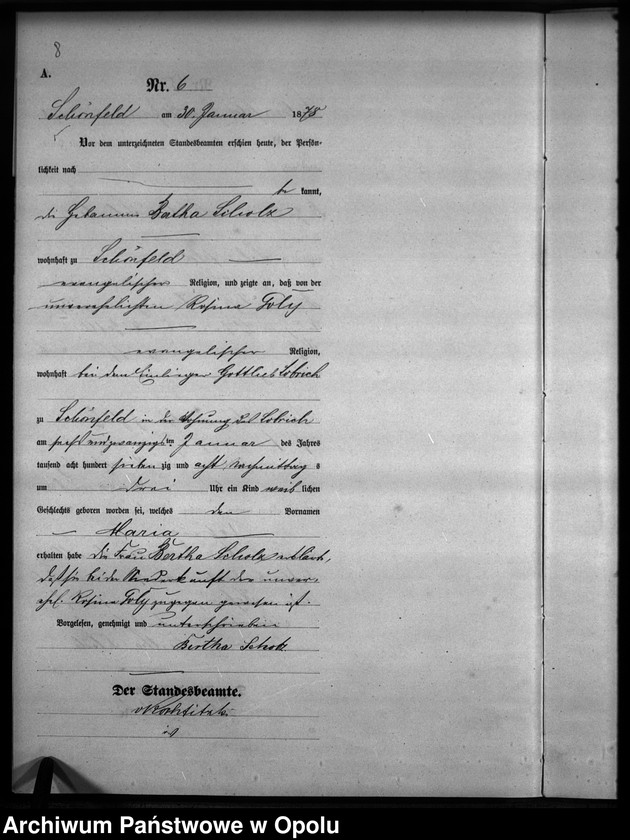 8
A.
Nr. 6
Schönfeld am 30. Januar 1878
Vor dem unterzeichneten Standesbeamten erschien heute, der Persön-
lichkeit nach
be kannt,
die Hebamme Batha Scholz
wohnhaft zu Schönfeld
evangelischer Religion, und zeigte an, daß von der
unverehelichten Rosina Foly
evangelischer Religion,
wohnhaft bei dem Einlieger Gottlieb Lobrich
zu Schönfeld in der Wohnung des Lobrich
am sechs und zwanzigs ten Januar des Jahres
tausend acht hundert sieben zig und acht Nachmittag s
um drei Uhr ein Kind weib lichen
Geschlechts geboren worden sei, welches den Vornamen
Maria
erhalten habe die Frau Bertha Scholz erklärte,
daß sie bei der Niederkunft der unver-
ehel. Rosina Foly zugegen gewesen ist.
Vorgelesen, genehmigt und unterschrieben
Bertha Scholz
Der Standesbeamte.
Archiwum Państwowe w Opolu